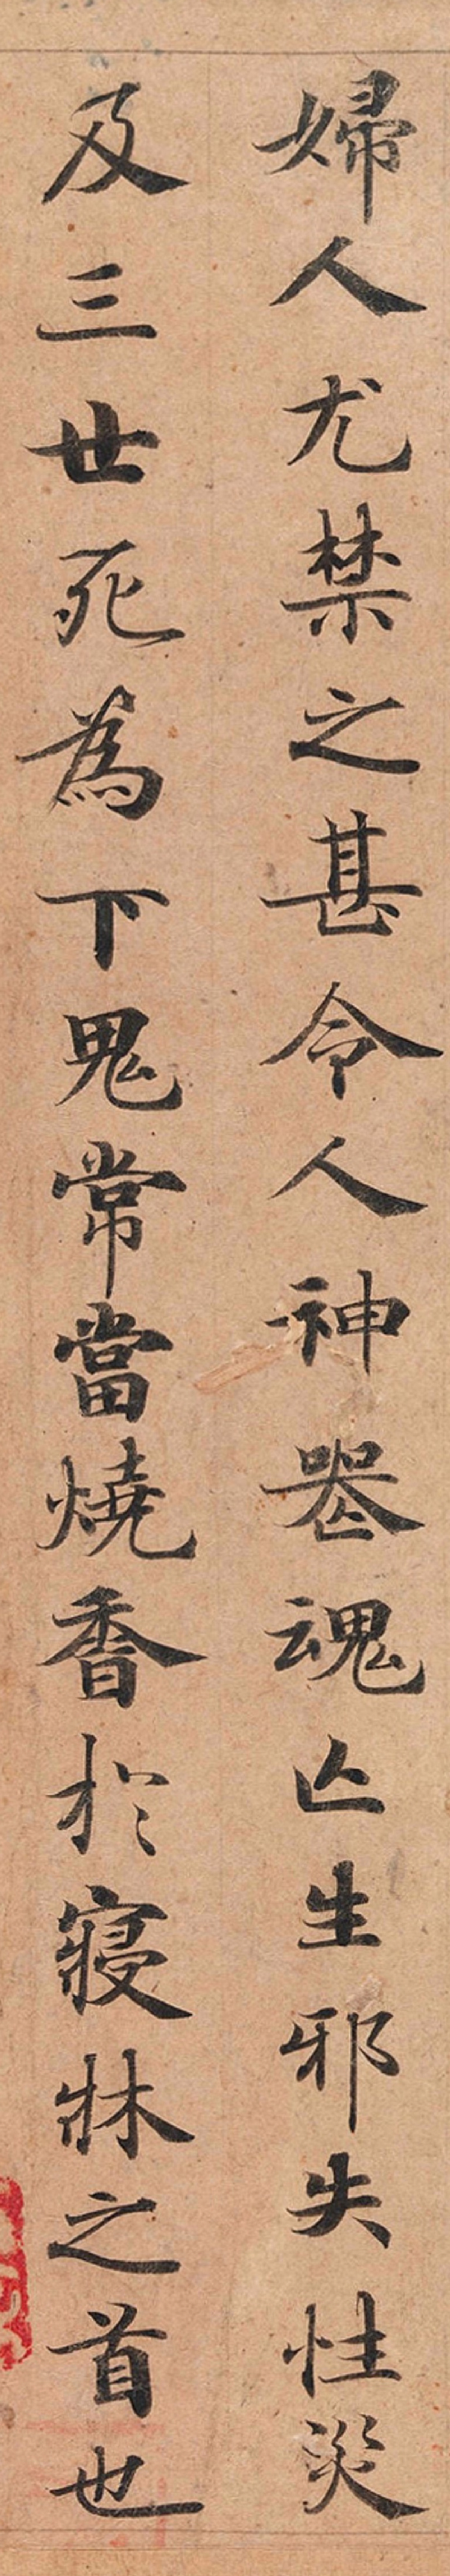 婦人尤禁之甚令人神喪魂亡生邪失性災
及三世死為下鬼常當燒香於寢牀之首也